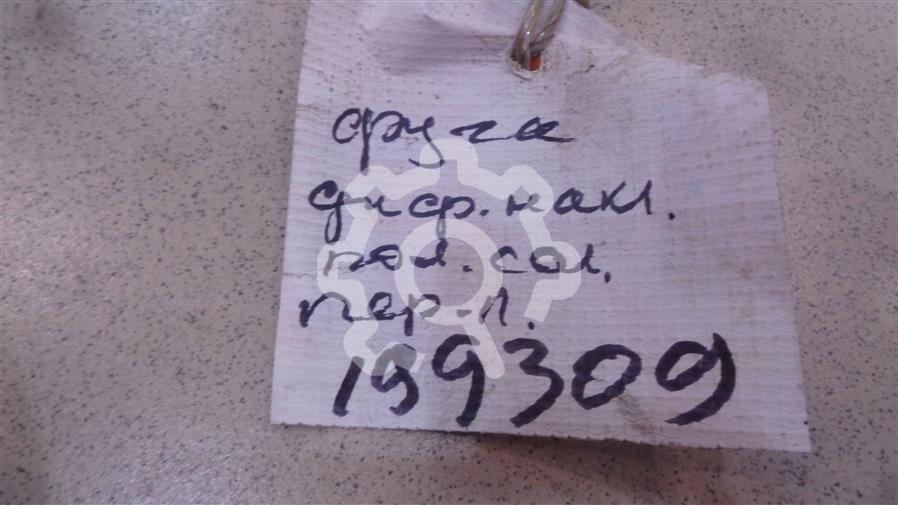 фуга
диф. накл.
пол. сал.
пер. л.
199309